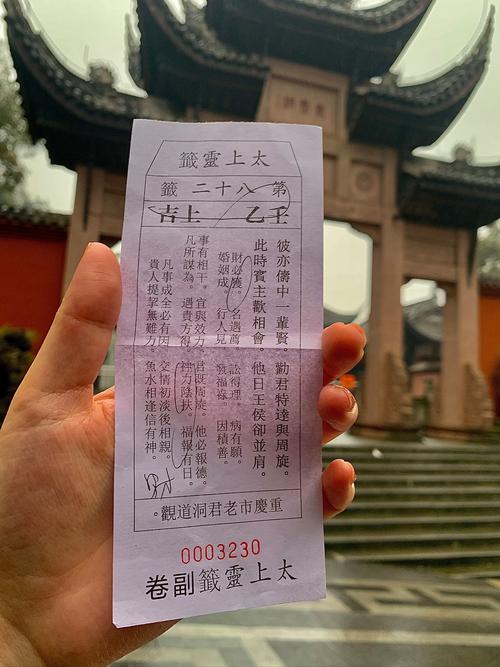 太上靈籤
第八十二籤
壬乙 上吉
彼亦儔中一輩賢。勸君特達與周旋。
此時賓主歡相會。他日王侯卻並肩。
財必獲。名遇薦。訟得理。病有願。
婚姻成。行人見。發福祿。因積善。
事有相干。宜與效力。君既周旋。他必報德。
凡所謀為。遇貴方得。神力陰扶。福報有日。
凡事成全必有因。交情初淡後相親。
貴人提挈無難力。魚水相逢信有神。
財
重慶市老君洞道觀。
0003230
太上靈籤副卷